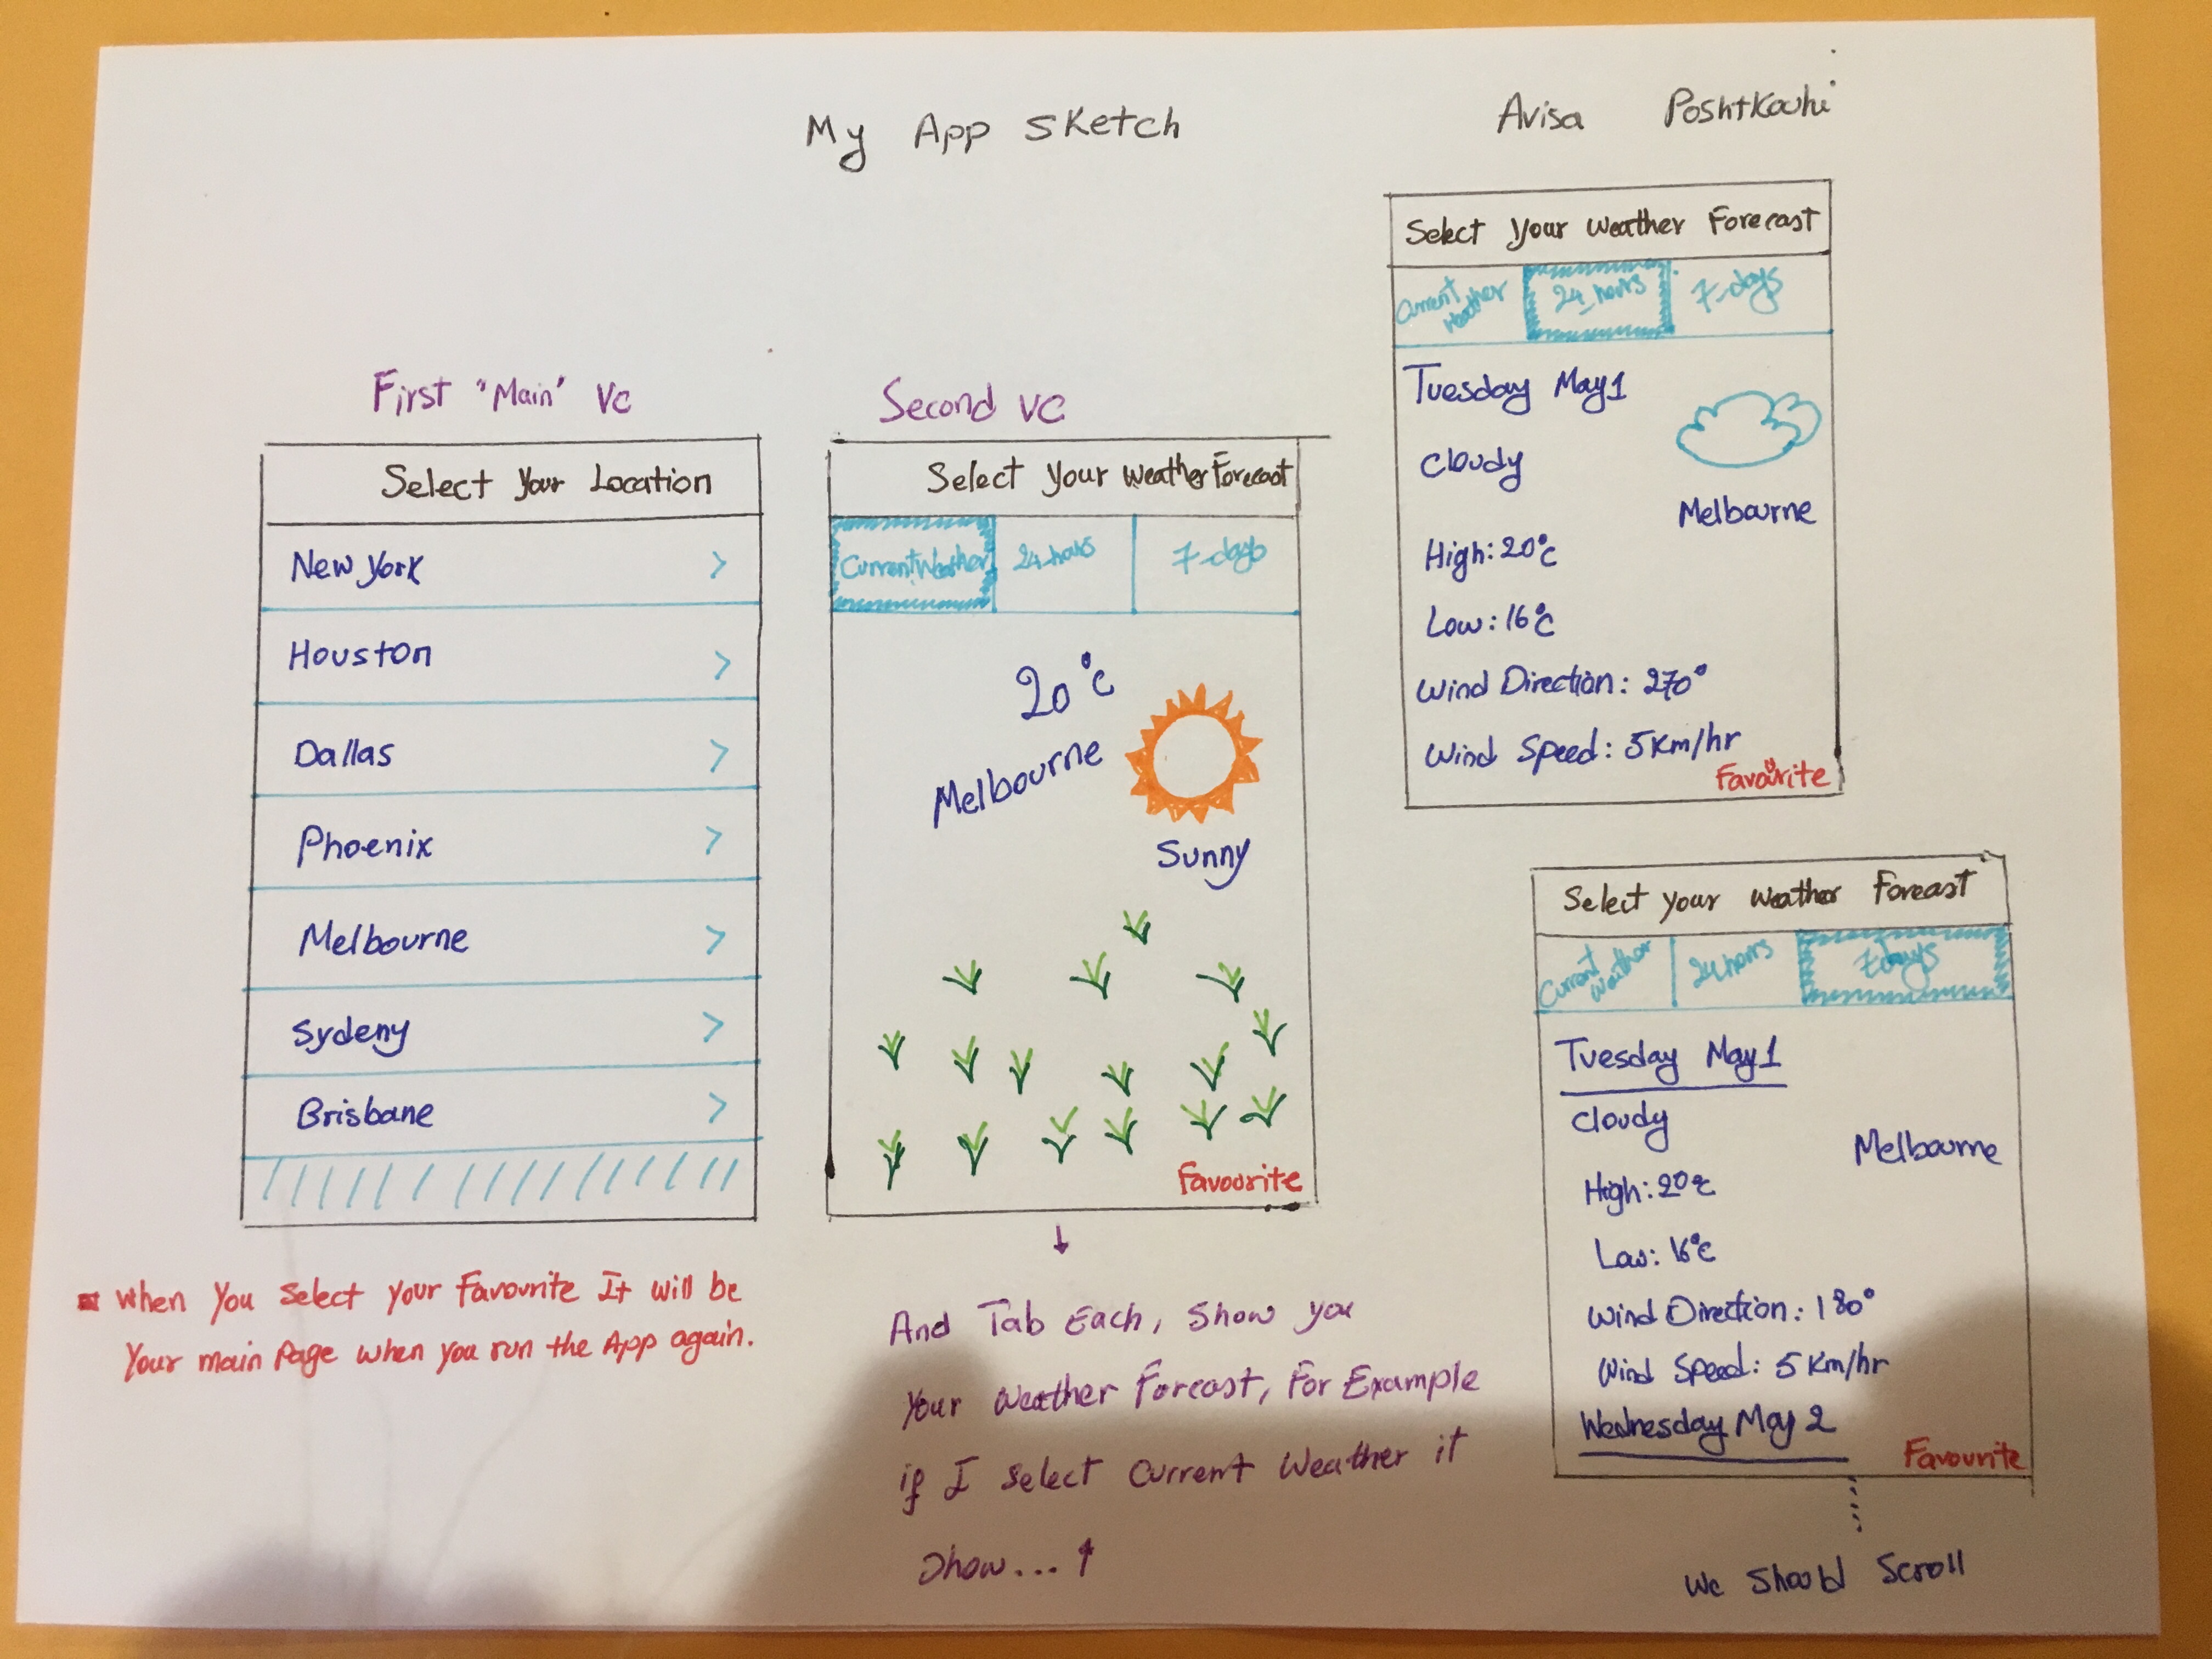 My App Sketch
Avisa Poshtkouhi
First "Main" VC
Select Your Location
New York >
Houston >
Dallas >
Phoenix >
Melbourne >
Sydeny >
Brisbane >
When You Select your Favourite It will be
Your main Page when you run the App again.
Second VC
Select Your Weather Forecast
Current Weather 24-hours 7-days
20°c
Melbourne
Sunny
Favourite
And Tab Each, Show you
Your Weather Forecast, For Example
if I Select Current Weather it
Show...
Select Your Weather Forecast
Current Weather 24_hours 7-days
Tuesday May 1
Cloudy
Melbourne
High: 20°c
Low: 16°c
Wind Direction: 270°
Wind Speed: 5 Km/hr
Favourite
Select your Weather Foreast
Current Weather 24 hours 7 days
Tuesday May 1
Cloudy
Melbourne
High: 20°c
Low: 16°c
Wind Direction: 180°
Wind Speed: 5 Km/hr
Wednesday May 2
Favourite
We Should Scroll